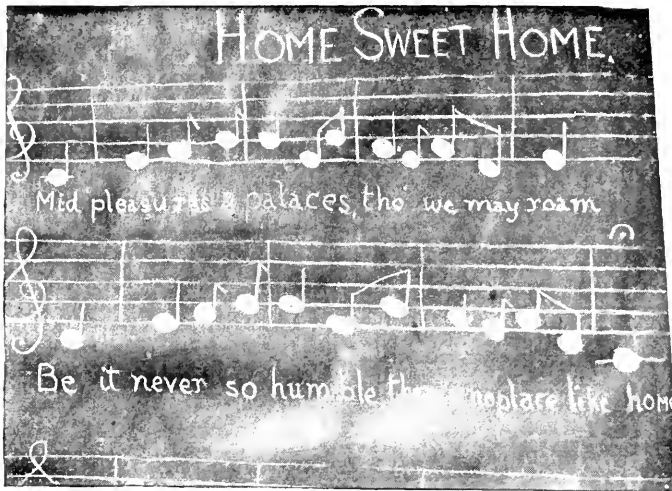 HOME SWEET HOME.
Mid pleasures & palaces, tho' we may roam
Be it never so humble no place like home